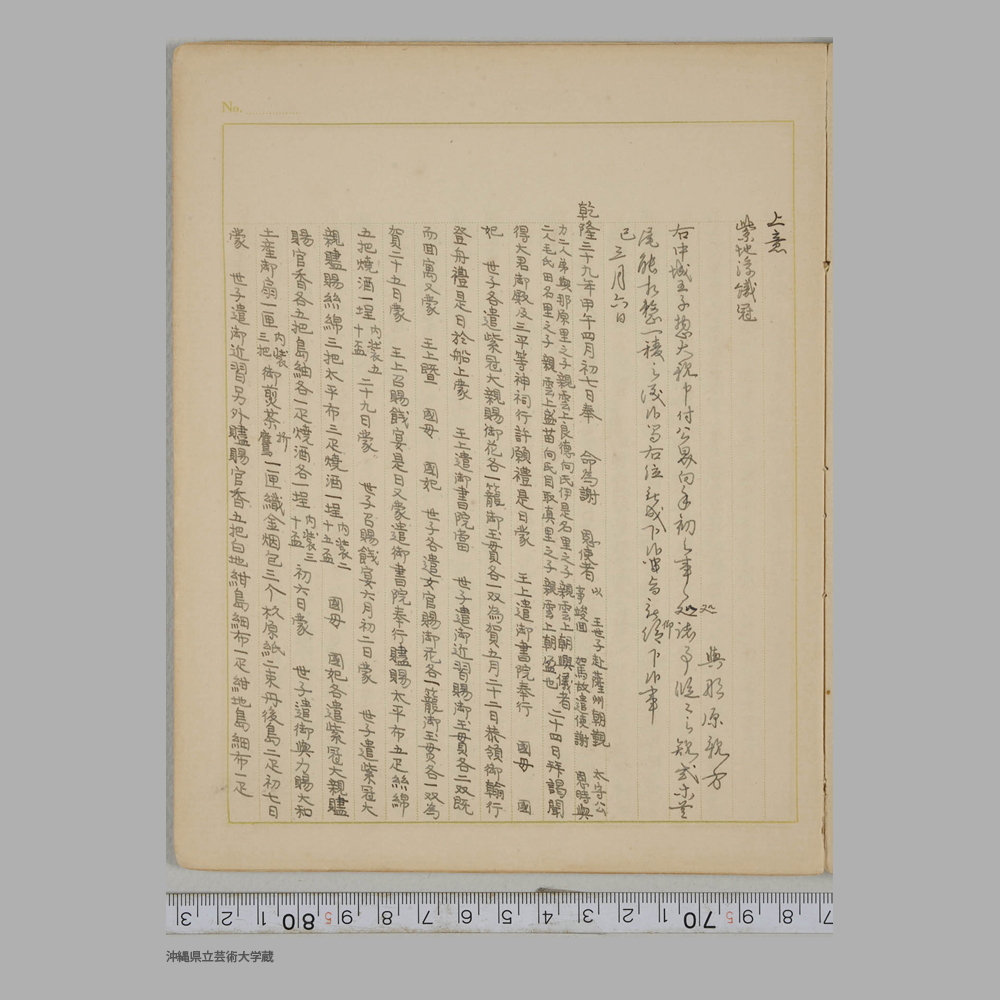 No.
上意
紫地浮織冠
與那原親方
右中城王子
已三月六日
乾隆三十九年甲午四月初七日奉 命為謝 恩使者 以 王世子赴薩州朝覲 太守公
事竣回 駕故遣使謝 恩時與
力二人弟與那原里之子親雲上良德向氏伊是名里之子親雲上朝興儀者
二人毛氏田名里之子親雲上盛苗向氏目取真里之子親雲上朝盈也 二十四日拜謁聞
得大君御殿及三平等神祠行許願禮是日蒙 王上遣御書院奉行 國母 國
妃 世子各遣紫冠大親賜御花各一籠御玉貫各一双為賀五月二十二日恭領御翰行
登舟禮是日於船上蒙 王上遣御書院當 世子遣御近習賜御玉貫各二双既
而回寓又蒙 王上曁 國母 國妃 世子各遣女官賜御花各一籠御玉貫各一双為
賀二十五日蒙 王上召賜餞宴是日又蒙遣御書院奉行贐賜太平布五疋絲綿
五把燒酒一埕 内裝五十盃 二十九日蒙 世子召賜餞宴六月初二日蒙 世子遣紫冠大
親贐賜絲綿三把太平布三疋燒酒一埕 内裝二十五盃 國母 國妃各遣紫冠大親贐
賜官香各五把島紬各一疋燒酒各一埕 内裝三十盃 初六日蒙 世子遣御與力賜大和
土産御扇一匣 内裝三把 御煎茶 鷹折 一匣織金烟包三个杉原紙二束丹後島二疋初七日
蒙 世子遣御近習另外贐賜官香五把白地紺島細布一疋紺地島細布一疋
3 2 1 80 5 9 8 7 6 5 4 3 2 1 70 5 9 8 7
沖縄県立芸術大学蔵